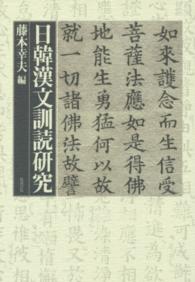 如來護念而生信受
菩薩法應如是得佛
地能生勇猛何以故
就一切諸佛法故譬
日韓漢文訓読研究
藤本幸夫 編